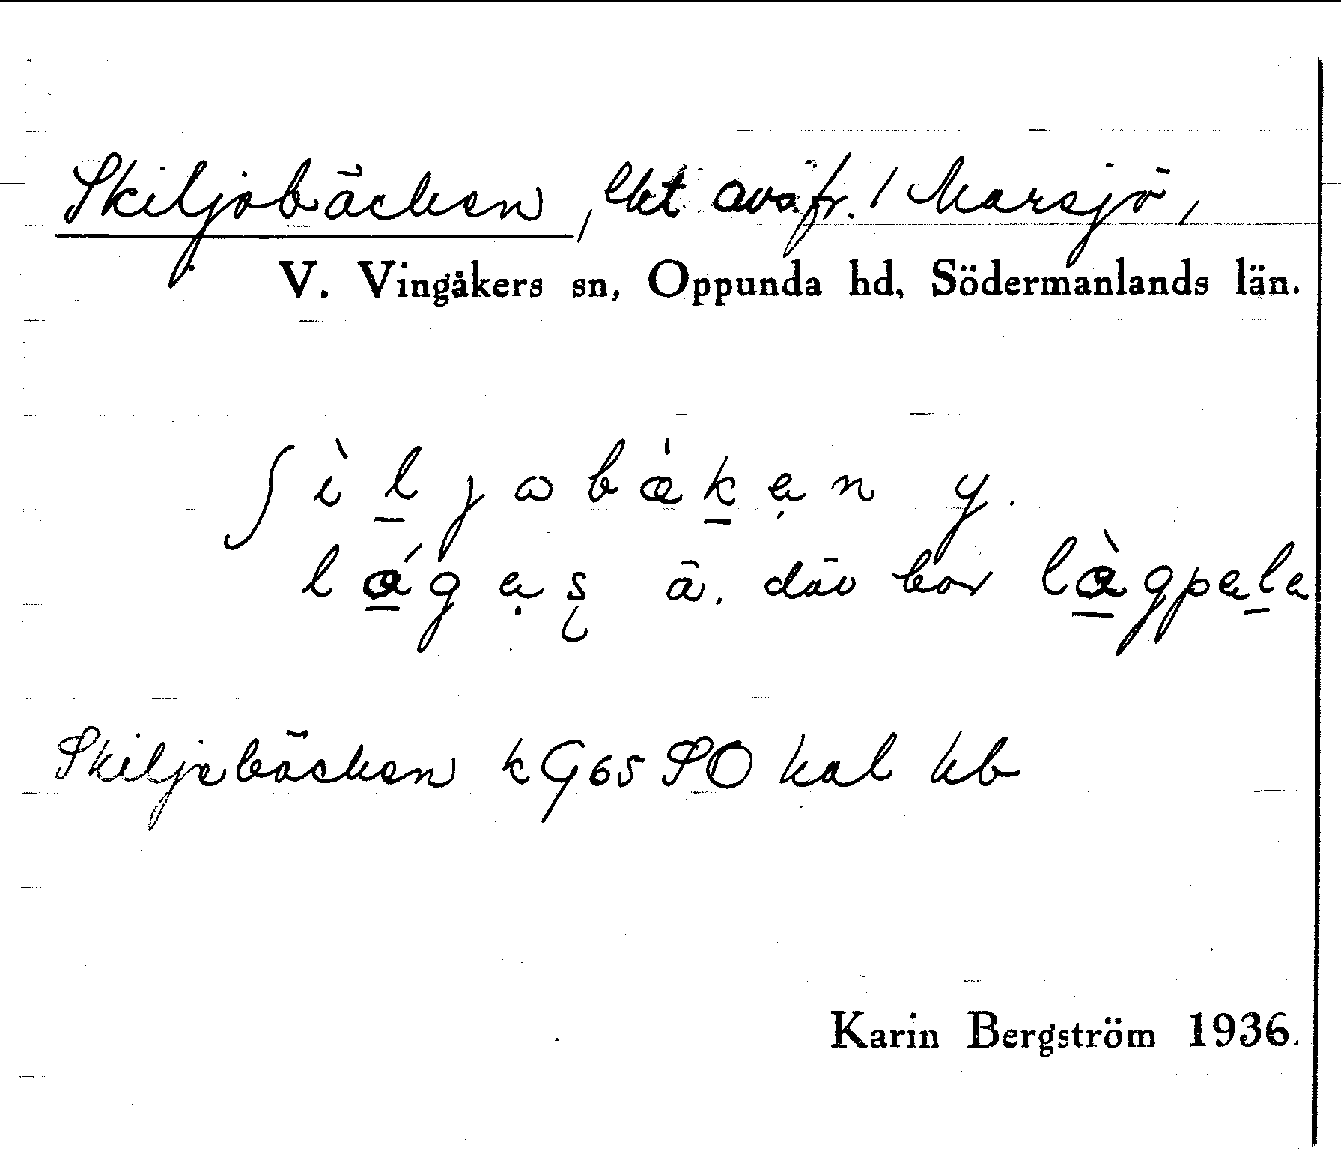 Skiljobäcken, lht avs. fr. / Marsjö,
V. Vingåkers sn, Oppunda hd, Södermanlands län.
ʃìljobǽkən y.
lǽgəʂ ä. där bor læ̀gpɐlɐ
Skiljebäcken k G65 SO kal kb
Karin Bergström 1936.